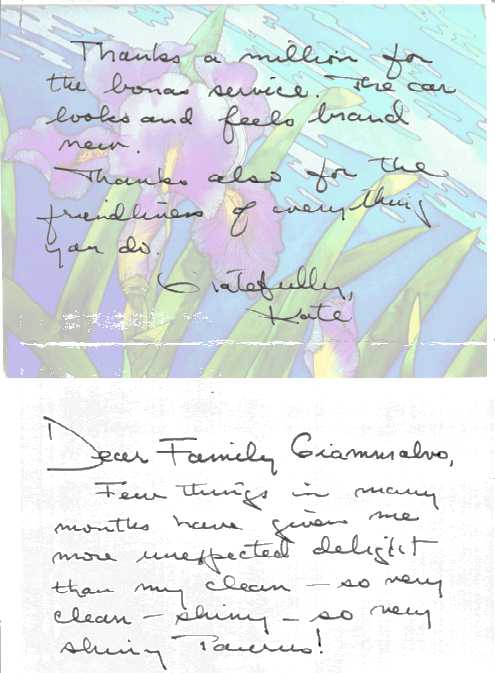 Thanks a million for
the bonus service. The car
looks and feels brand
new.
Thanks also for the
friendliness of everything
you do.
Gratefully,
Kate
Dear Family Giammalvo,
Few things in many
months have given me
more unexpected delight
than my clean – so very
clean – shiny – so very
shiny Taurus!